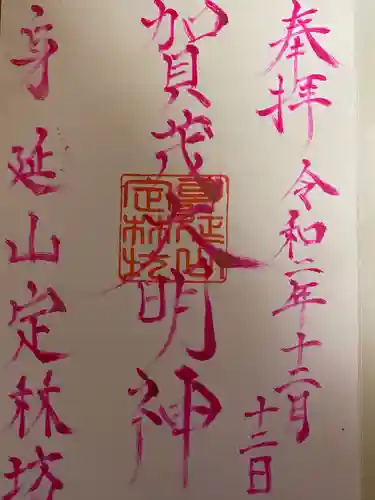 奉拝
令和二年十二月
十三日
賀茂大明神
身延山定林坊
身延山
定林坊